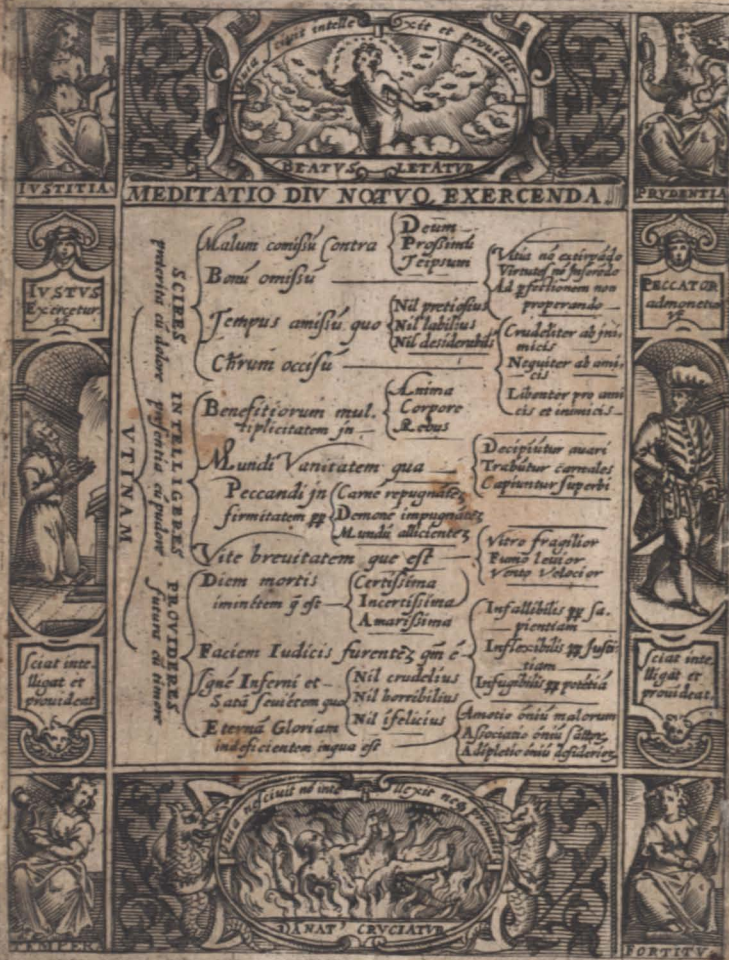 quia scivit intellexit et providit
BEATVS LETATVR
IVSTITIA
PRVDENTIA
MEDITATIO DIV NOTVQ EXERCENDA
IVSTVS
Exercetur
vt
PECCATOR
admonetur
vt
VTINAM
SCIRES
preterita cũ dolore
INTELLIGERES
presentia cũ pudore
PROVIDERES
futura cũ timore
Malum comissũ Contra
Deum
Prossimũ
Teipsum
Bonũ omissũ
Vitia nõ extirpãdo
Virtutes nõ Inserẽdo
Ad pfectionem non
properando
Tempus amissũ quo
Nil pretiosius
Nil labilius
Nil desiderabili
Chrum occisũ
Crudeliter ab ini-
micis
Nequiter ab ami-
cis
Libenter pro ami
cis et inimicis
Benefitiorum mul.
tiplicitatem jn
Anima
Corpore
Rebus
Mundi Vanitatem qua
Decipiũtur auari
Trahũtur carnales
Capiuntur superbi
Peccandi jn
firmitatem
Carne repugnãtez
Demone impugnãtez
Mundũ allicientez
Vite breuitatem que est
Vitro fragilior
Fumo leuior
Vento Velocior
Diem mortis
iminẽtem q̃ est
Certissima
Incertissima
Amarissima
Faciem Iudicis furentez qm̃ ẽ
Infallibilis sa-
pientiam
Inflexibilis Iusti
tiam
Infugibilis potẽtiã
Ignẽ Inferni et
Satã seuiẽtem quo
Nil crudelius
Nil horribilius
Nil ĩfelicius
Eternã Gloriam
indeficientem inqua est
Amotio õniũ malorum
Associatio õniũ
Adipletio õniũ desideriez
Sciat inte.
lligat et
prouideat
Sciat inte.
lligat et
prouideat
quia nesciuit nõ intellexit neq prouidit
DANAT' CRVCIATVR
TEMPERA
FORTITV